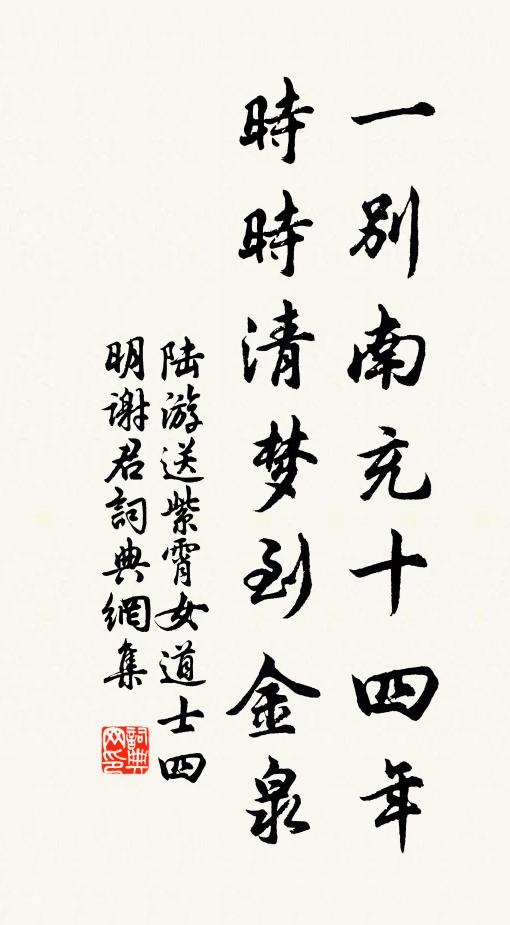 一别南充十四年
時時清梦到金泉
陸游送紫霄女道士四
明谢君詞典網集
詞典
网印